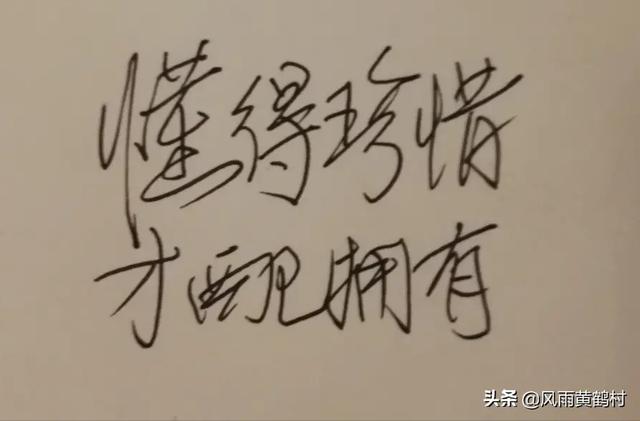 懂得珍惜
才配拥有
头条 @风雨黄鹤村